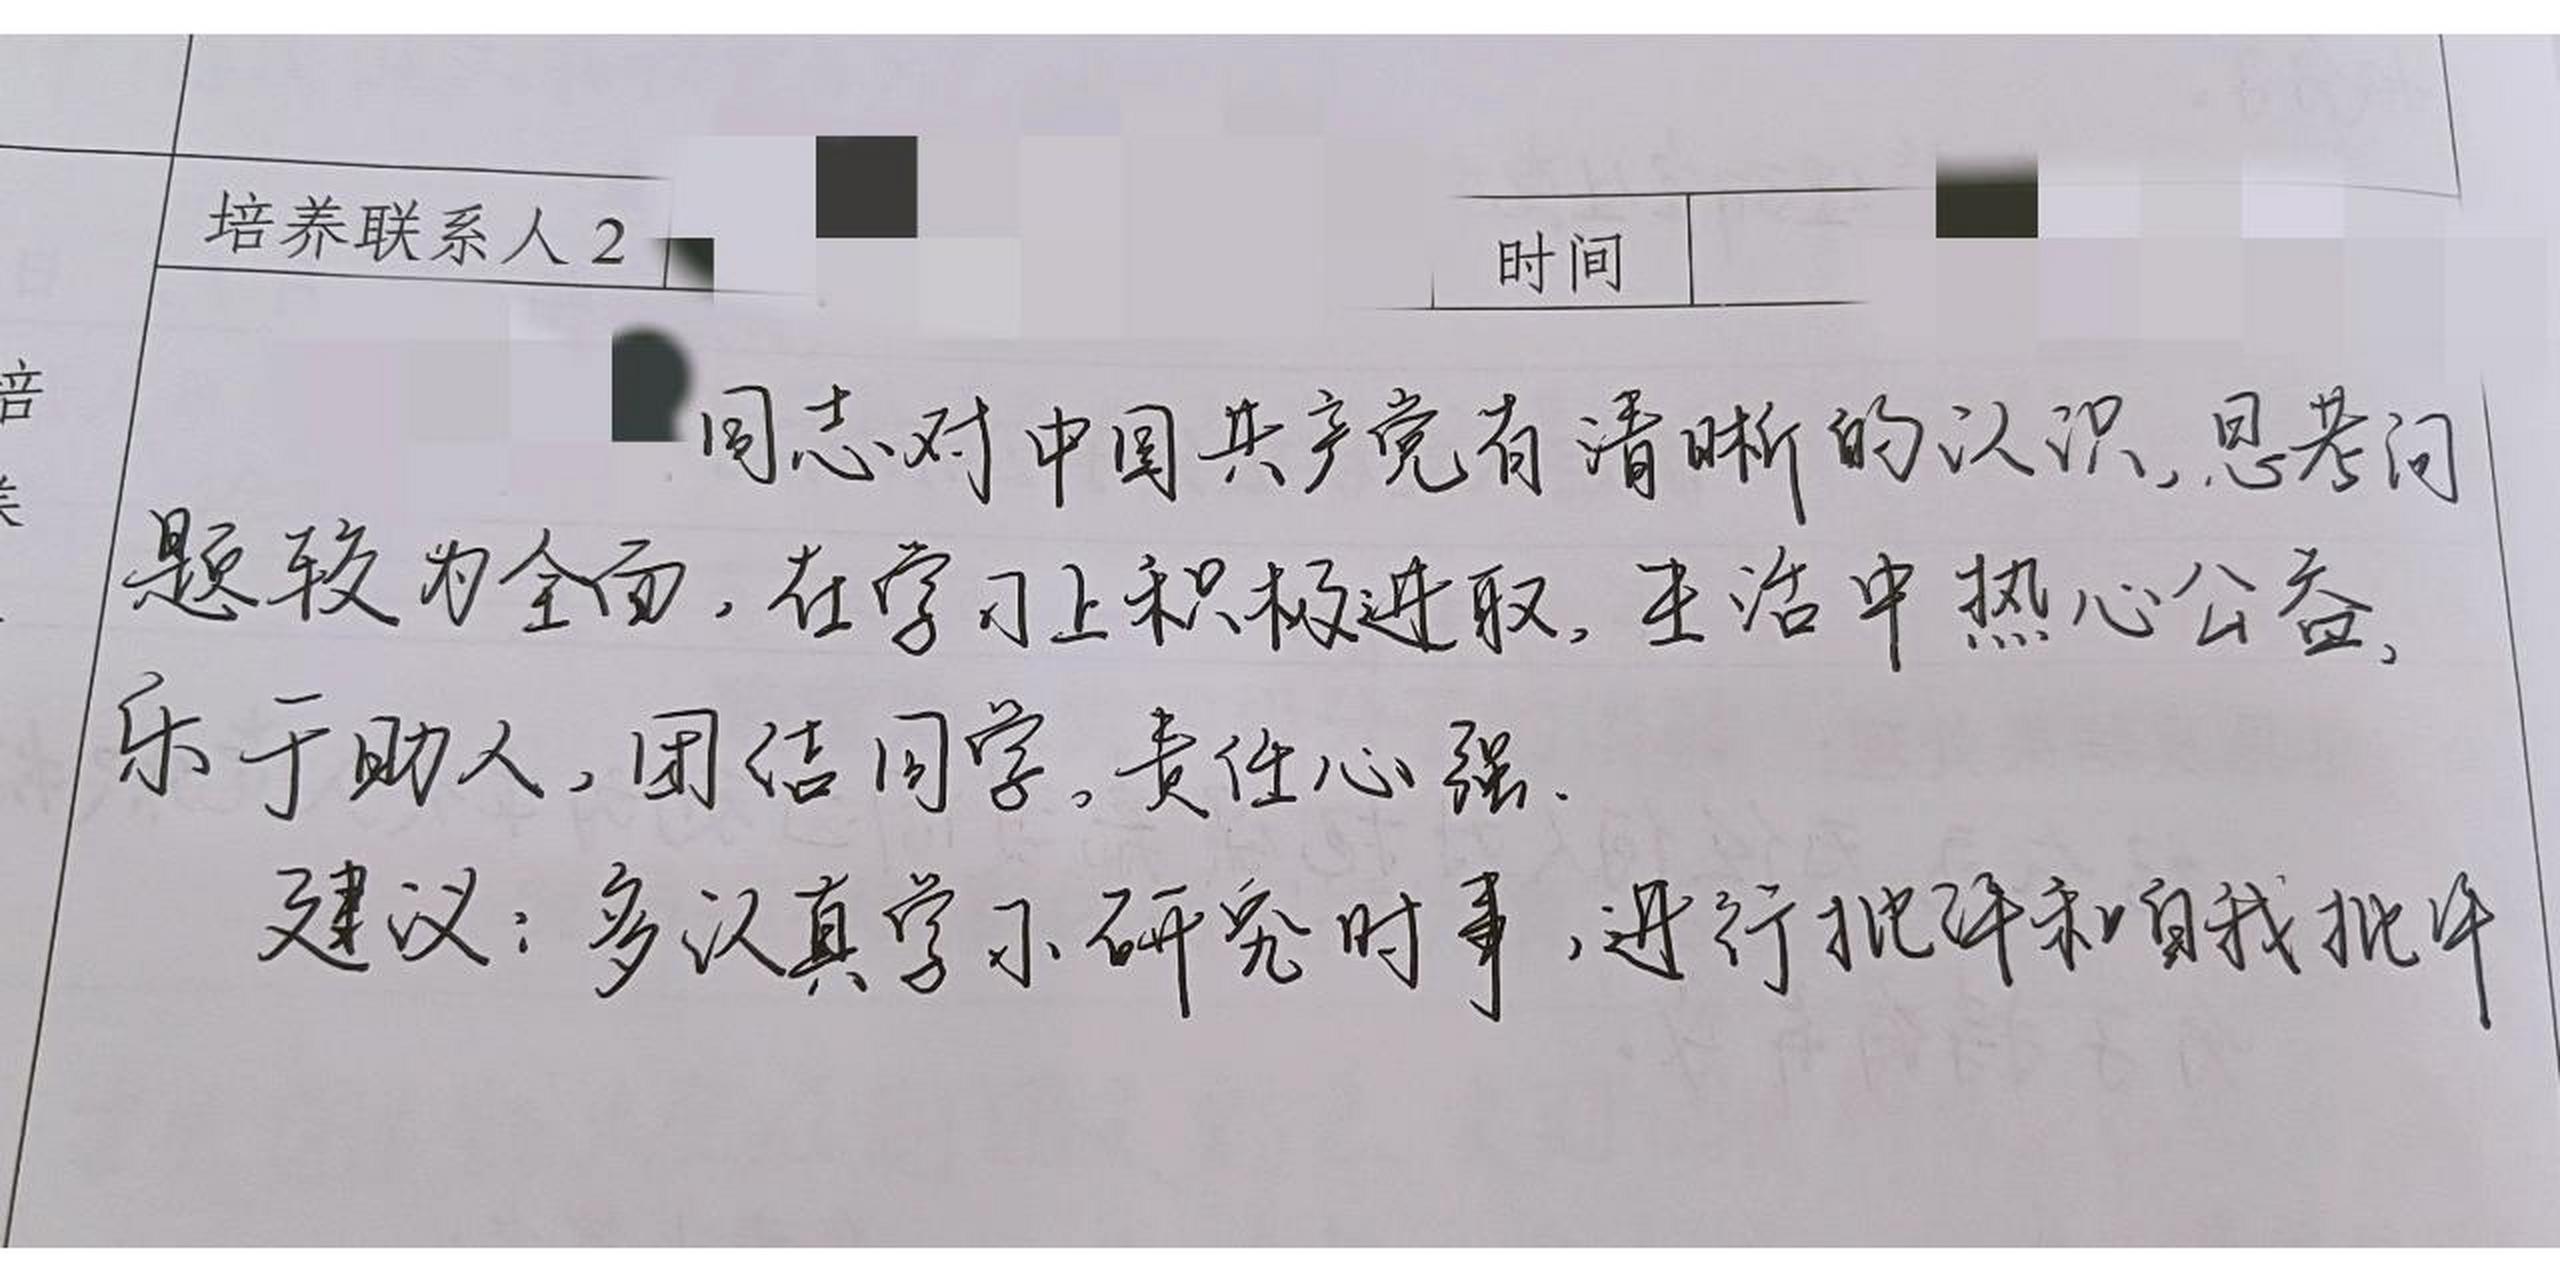 培养联系人2 时间
培
同志对中国共产党有清晰的认识,思考问
题较为全面,在学习上积极进取,生活中热心公益,
乐于助人,团结同学,责任心强.
建议:多认真学习研究时事,进行批评和自我批评